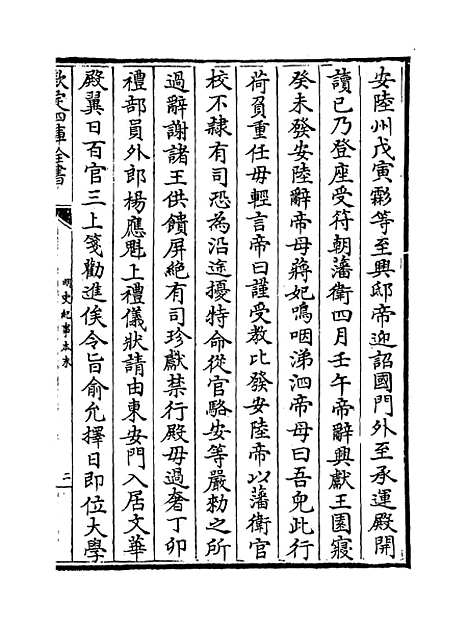 安陸州戊寅霦等至興邸帝迎詔國門外至承運殿開
讀已乃登座受符朝藩衛四月壬午帝辭興獻王園寢
癸未發安陸辭帝母蔣妃嗚咽涕泗帝母曰吾兒此行
荷負重任毋輕言帝曰謹受教比發安陸帝以藩衛官
校不隸有司恐為沿途擾特命從官駱安等嚴勅之所
過辭謝諸王供饋屏絕有司珍獻禁行殿毋過奢丁卯
禮部員外郎楊應魁上禮儀狀請由東安門入居文華
殿翼日百官三上箋勸進俟令旨俞允擇日即位大學
欽定四庫全書
明史紀事本末
三